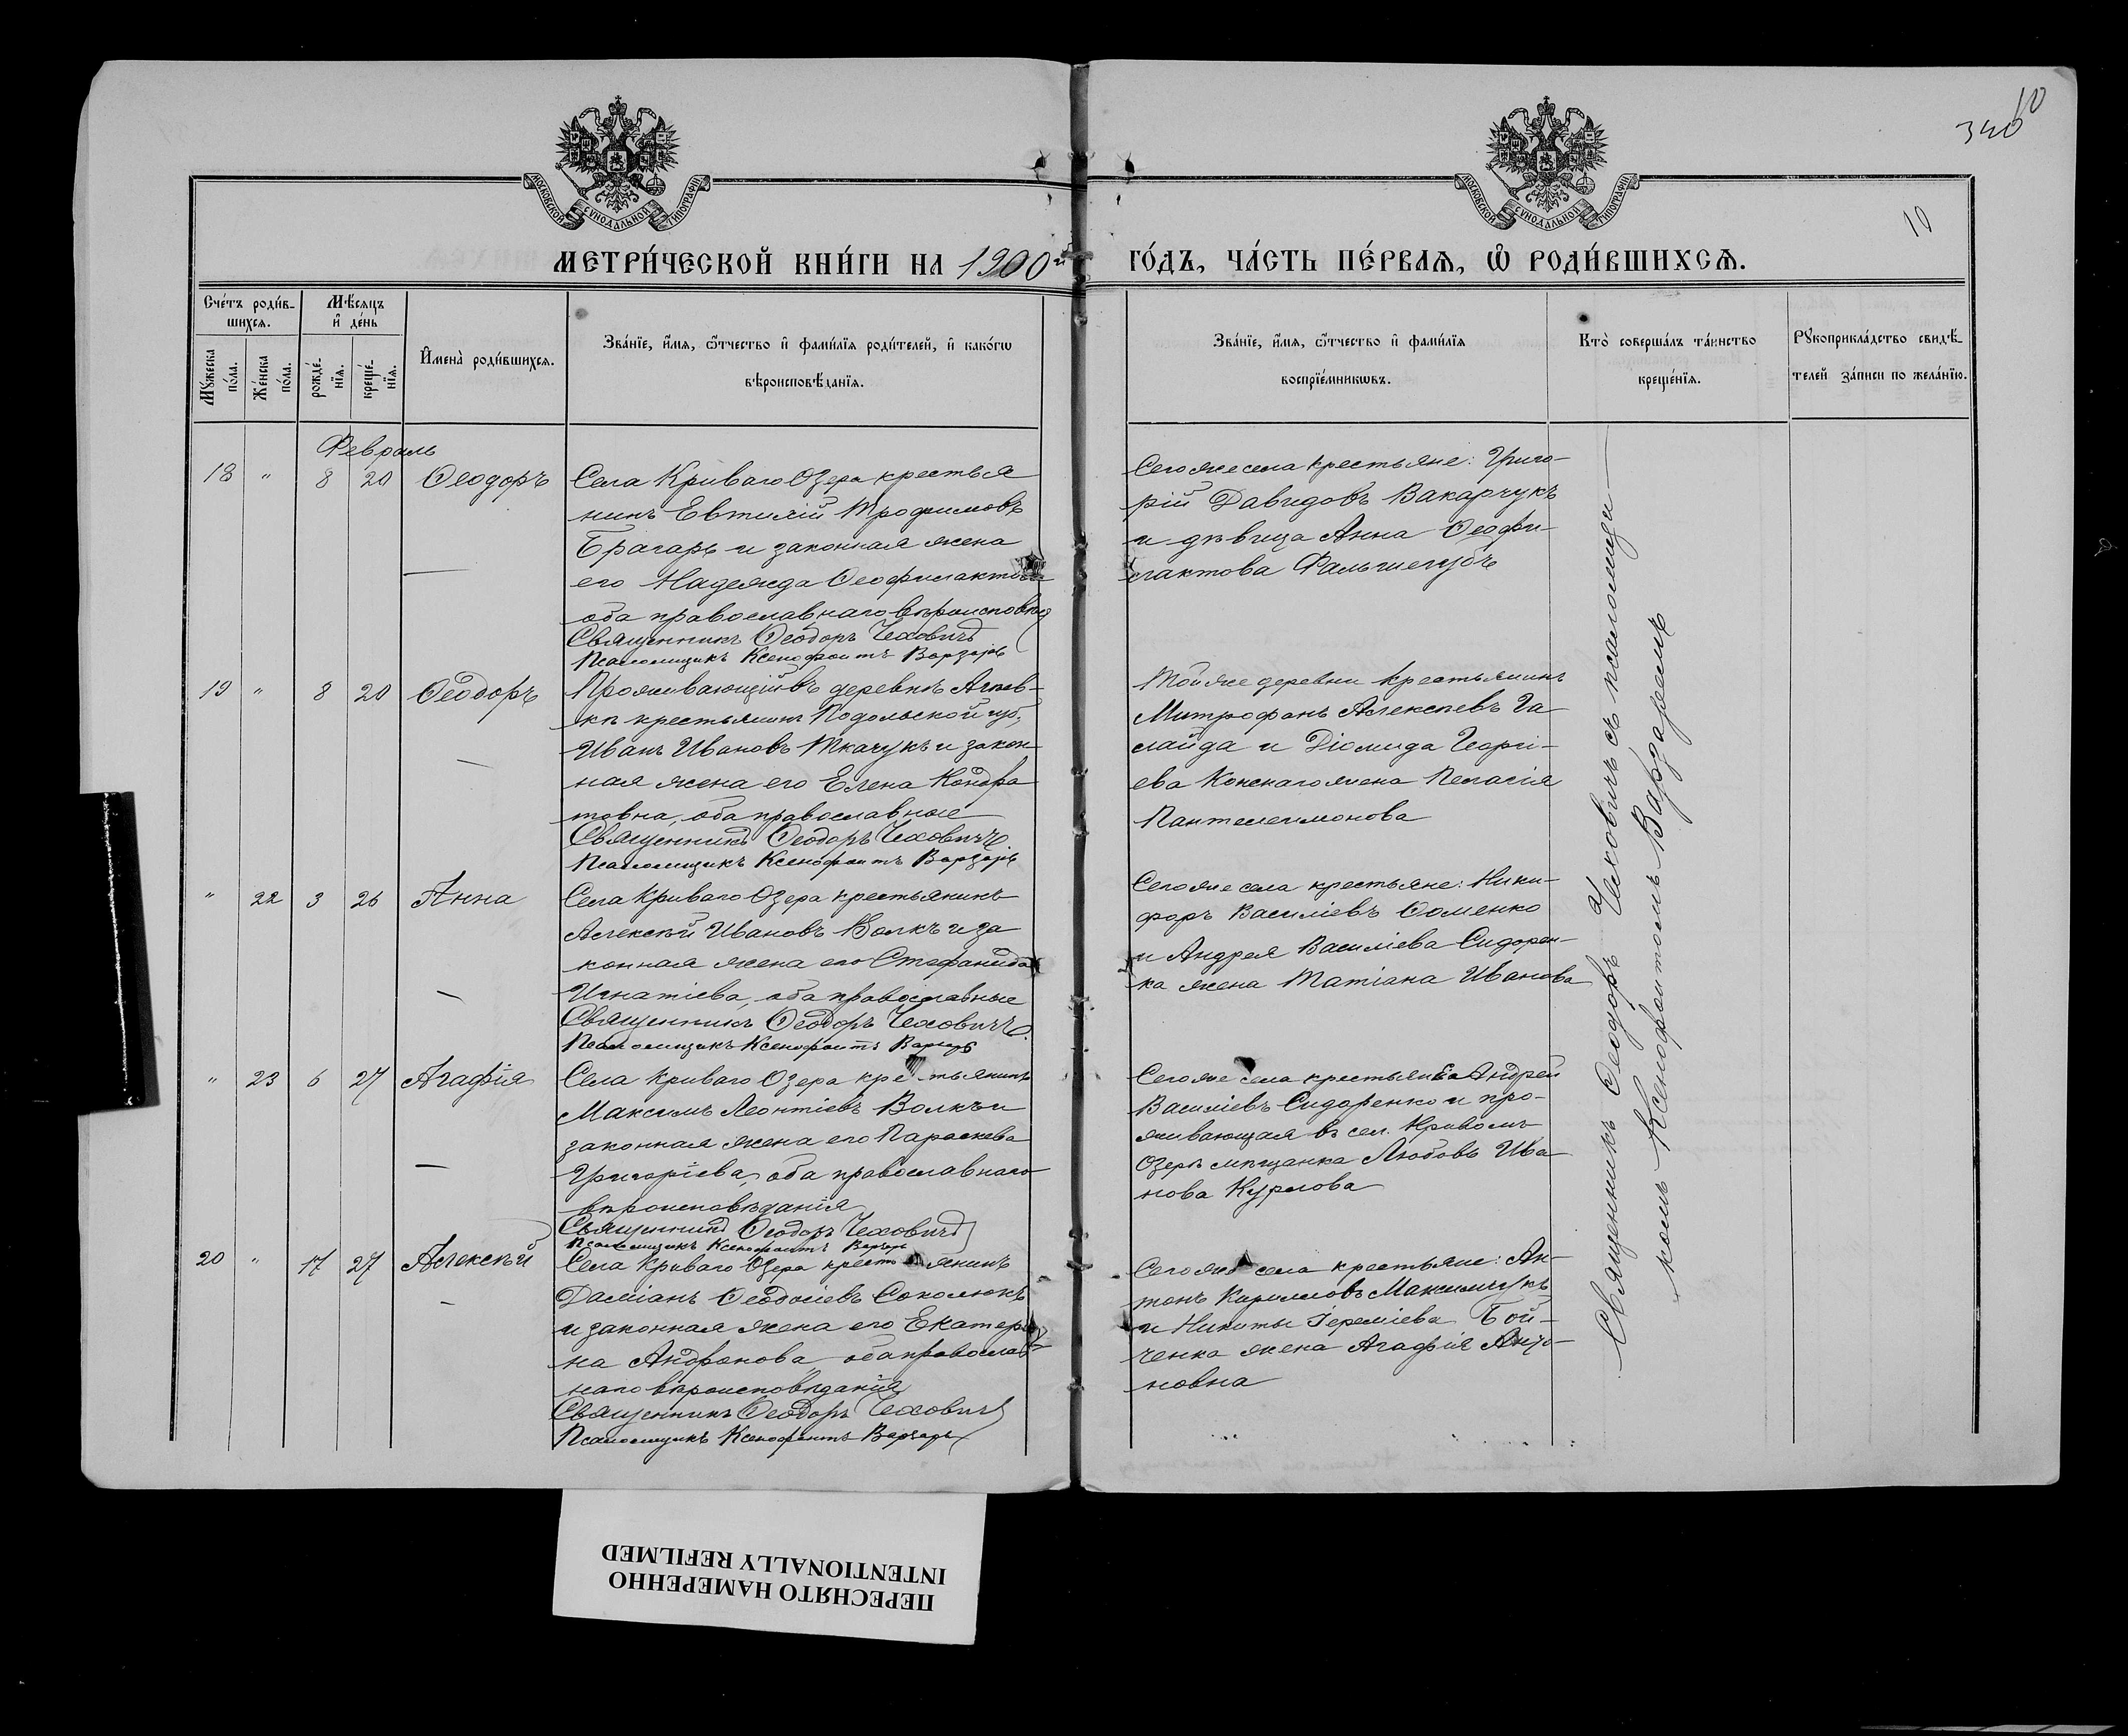 10
340
10
МОСКОВСКОЙ СѴНОДАЛЬНОЙ ТИПОГРАФІИ
МОСКОВСКОЙ СѴНОДАЛЬНОЙ ТИПОГРАФІИ
МЕТРИ́ЧЕСКОЙ КНИ́ГИ НА 1900й
ГО́ДЪ, ЧА́СТЬ ПЕ́РВАЯ, Ѡ҆ РОДИ́ВШИХСЯ.
Сче́тъ роди́в-
шихся.
Му́жеска по́ла.
Же́нска по́ла.
Мѣ́сяцъ
и҆ де́нь
рожде́-нїя.
креще́-нїя.
И҆мена̀ роди́вшихся.
Зва́нїе, и҆́мя, ѻ҆́тчество и҆ фами́лїя роди́телей, и҆ како́гѡ
вѣроисповѣ́данїя.
Зва́нїе, и҆́мя, ѻ҆́тчество и҆ фами́лїя
воспрїе́мникѡвъ.
Кто̀ соверша́лъ та́инство
креще́нїя.
Рꙋкоприкла́дство свидѣ́-
телей за́писи по жела́нїю.
Февраль
18 " 8 20 Ѳеодоръ
Села Криваго Озера крестья
нинъ Евтихій Трофимовъ
Брагарь и законная жена
его Надежда Ѳеофилактова
оба православнаго вѣроисповѣд
Священникъ Ѳеодоръ Чехович
Псаломщикъ Ксенофонтъ Варзарь
Сегоже села крестьяне: Григо-
рій Давидовъ Вакарчукъ
и дѣвица Анна Ѳеофи-
лактова Фальшегубъ
19 " 8 20 Ѳеодоръ
Проживающій въ деревнѣ
кѣ крестьянинъ Подольской губ,
Иванъ Ивановъ Ткачукъ и закон-
ная жена его Елена Кондра
товна, оба православные
Священникъ Ѳеодоръ Чеховичъ
Псаломщикъ Ксенофонтъ Варзарь
Тойже деревни крестьянинъ
Митрофанъ Алексѣевъ Га
лайда и Діомида Георгі-
ева жена Пелагія
Пантелеимонова
" 22 3 26 Анна
Села Криваго Озера крестьянинъ
Алексѣй Ивановъ Волкъ и за
конная жена его Стефанида
Игнатіева, оба православные
Священникъ Ѳеодоръ Чеховичъ
Псаломщикъ Ксенофонтъ Варзарь
Сегоже села крестьяне: Ники-
форъ Василіевъ Ѳоменко
и Андрея Василіева Сидорен-
ка жена Татіана Иванова
" 23 6 27 Агафія
Села Криваго Озера кре тьянинъ
Максимъ Леонтіевъ Волкъ и
законная жена его Параскева
Григоріева, оба православнаго
вѣроисповѣданія
Священникъ Ѳеодоръ Чехович
Псаломщикъ Ксенофонтъ Варзарь
Сегоже села крестьянинъ Андрей
Василіевъ Сидоренко и про-
живающая въ сел. Кривомъ
Озерѣ мѣщанка Любовь Ива
нова Курлова
20 " 17 27 Алексѣй
Села Криваго Озера крестьянинъ
Даміанъ Ѳеодосіевъ Соколюкъ
и законная жена его Екатери
на Андронова, оба православ
наго вѣроисповѣданія
Священникъ Ѳеодоръ Чехович
Псаломщикъ Ксенофонтъ Варзарь
Сегоже села крестьяне: Ан-
тонъ Кирилловъ Максимчукъ
и Никиты Іереміева Бой-
ченка жена Агафія
новна
Священникъ Ѳеодоръ Чеховичъ съ псаломщи
комъ Ксенофонтомъ Варзаремъ
ПЕРЕСНЯТО НАМЕРЕННО
INTENTIONALLY REFILMED